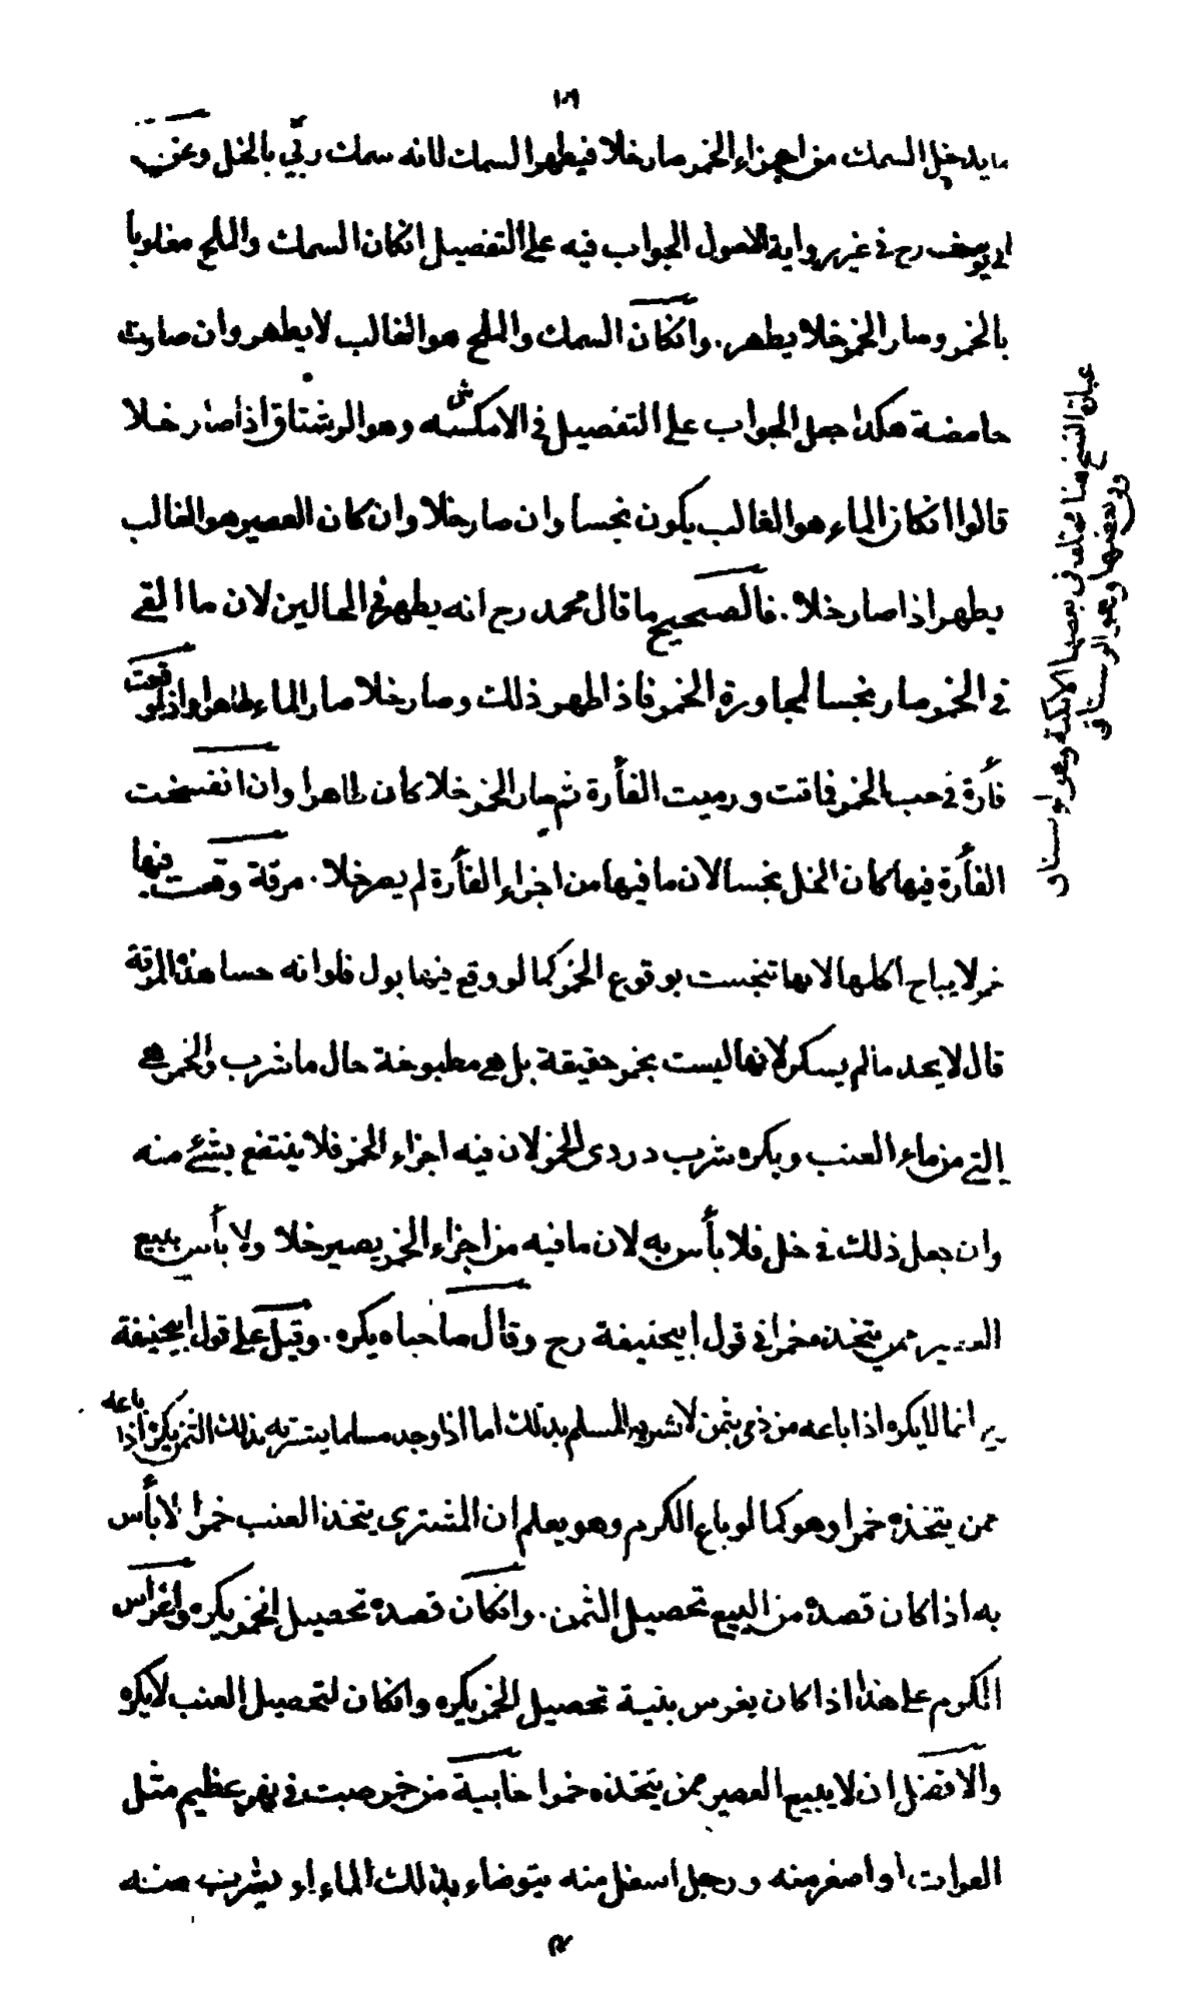 ١٠٩
ما يدخل السمك من اجزاء الخمر صار خلا فيطهر السمك لانه سمك ربّي بالخل وعن
ابي يوسف رح في غير رواية الاصول الجواب فيه على التفصيل انكان السمك والملح مغلوبا
بالخمر وصار الخمر خلا يطهر. وانكان السمك والملح هو الغالب لا يطهر وان صارت
حامضة هكذا جعل الجواب على التفصيل في الامكسه وهو الرشتاق اذا صار خلا
قالوا انكان الماء هو الغالب يكون نجسا وان صار خلا وان كان العصير هو الغالب
يطهر اذا صار خلا. فالصحيح ما قال محمد رح انه يطهر في الحالين لان ما القي
في الخمر صار نجسا لمجاورة الخمر فاذا طهر ذلك وصار خلا صار الماء طاهرا واذا وقعت
فأرة في حب الخمر فماتت ورميت الفأرة ثم صار الخمر خلا كان طاهرا وان انفسخت
الفأرة فيها كان الخل نجسا لان ما فيها من اجزاء الفأرة لم يصر خلا. مرقة وقعت فيها
خمر لا يباح اكلها لانها تنجست بوقوع الخمر كما لو وقع فيها بول فلو انه حسا هذه المرقة
قال لا يحد ما لم يسكر لانها ليست بخمر حقيقة بل هي مطبوخة حال ما شرب والخمر هي
التي من ماء العنب ويكره شرب دردي الخمر لان فيه اجزاء الخمر فلا ينتفع بشئ منه
وان جعل ذلك في خل فلا بأس به لان ما فيه من اجزاء الخمر يصير خلا ولا بأس ببيع
العصير ممن يتخذه خمرا في قول ابيحنيفة رح وقال صاحباه يكره. وقيل على قول ابيحنيفة
انما لا يكره اذا باعه من ذمي بثمن لا يشتريه المسلم بذلك اما اذا وجد مسلما يشتريه بذلك الثمن يكره اذا باعه
ممن يتخذه خمرا وهو كما لو باع الكرم وهو يعلم ان المشتري يتخذ العنب خمرا لا بأس
به اذا كان قصده من البيع تحصيل الثمن. وانكان قصده تحصيل الخمر يكره وغراس
الكرم على هذا اذا كان يغرس بنية تحصيل الخمر يكره وانكان لتحصيل العنب لا يكره
والافضل ان لا يبيع العصير ممن يتخذه خمرا خابية من خمر صبت في نهر عظيم مثل
الفرات او اصغر منه ورجل اسفل منه يتوضاء بذلك الماء او يشرب منه
عبارة النسخ هنا مختلف في بعضها الامكسة وهو
وفي بعضها وهو الرستاقي